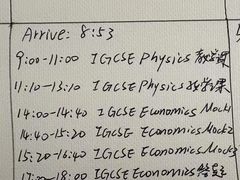 Arrive: 8:53
9:00-11:00 IGCSE Physics 教学课
11:10-13:10 IGCSE Physics 教学课
14:00-14:40 IGCSE Economics Mock1
14:40-15:20 IGCSE Economics Mock2
15:20-16:40 IGCSE Economics Mock3
17:00-18:00 IGCSE Economics